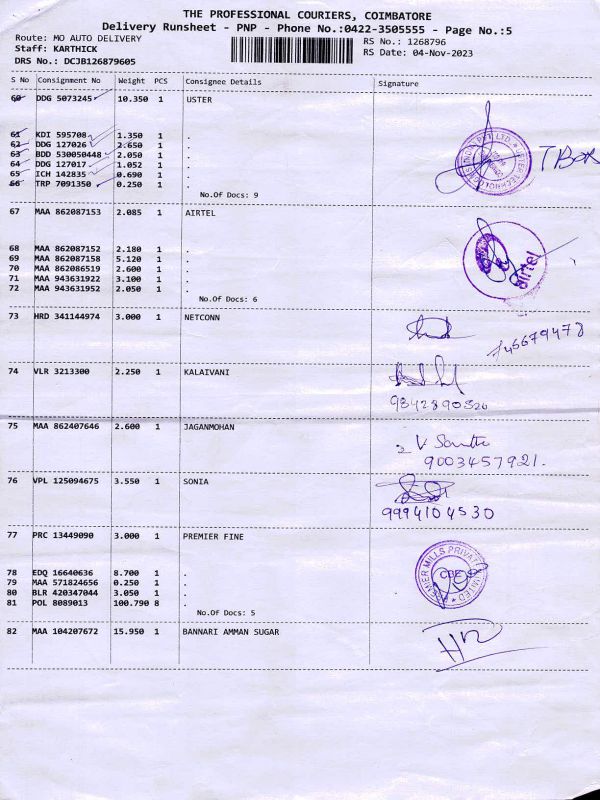 THE PROFESSIONAL COURIERS, COIMBATORE
Delivery Runsheet - PNP - Phone No.:0422-3505555 - Page No.:5
Route: MO AUTO DELIVERY
RS No.: 1268796
Staff: KARTHICK
RS Date: 04-Nov-2023
DRS No.: DCJB126879605
S No Consignment No Weight PCS Consignee Details Signature
60 DDG 5073245 10.350 1 USTER
61 KDI 595708 1.350 1 .
62 DDG 127026 2.650 1 .
63 BDD 530050448 2.050 1 .
64 DDG 127017 1.052 1 .
65 ICH 142835 0.690 1 .
66 TRP 7091350 0.250 1 .
No.Of Docs: 9
67 MAA 862087153 2.085 1 AIRTEL
68 MAA 862087152 2.180 1 .
69 MAA 862087158 5.120 1 .
70 MAA 862086519 2.600 1 .
71 MAA 943631922 3.100 1 .
72 MAA 943631952 2.050 1 .
No.Of Docs: 6
airtel
73 HRD 341144974 3.000 1 NETCONN
74 VLR 3213300 2.250 1 KALAIVANI
9842890520
75 MAA 862407646 2.600 1 JAGANMOHAN
9003457921.
76 VPL 125094675 3.550 1 SONIA
9994104530
77 PRC 13449090 3.000 1 PREMIER FINE
PREMIER MILLS PRIVATE LIMITED
CBE
78 EDQ 16640636 8.700 1 .
79 MAA 571824656 0.250 1 .
80 BLR 420347044 3.050 1 .
81 POL 8089013 100.790 8 .
No.Of Docs: 5
82 MAA 104207672 15.950 1 BANNARI AMMAN SUGAR